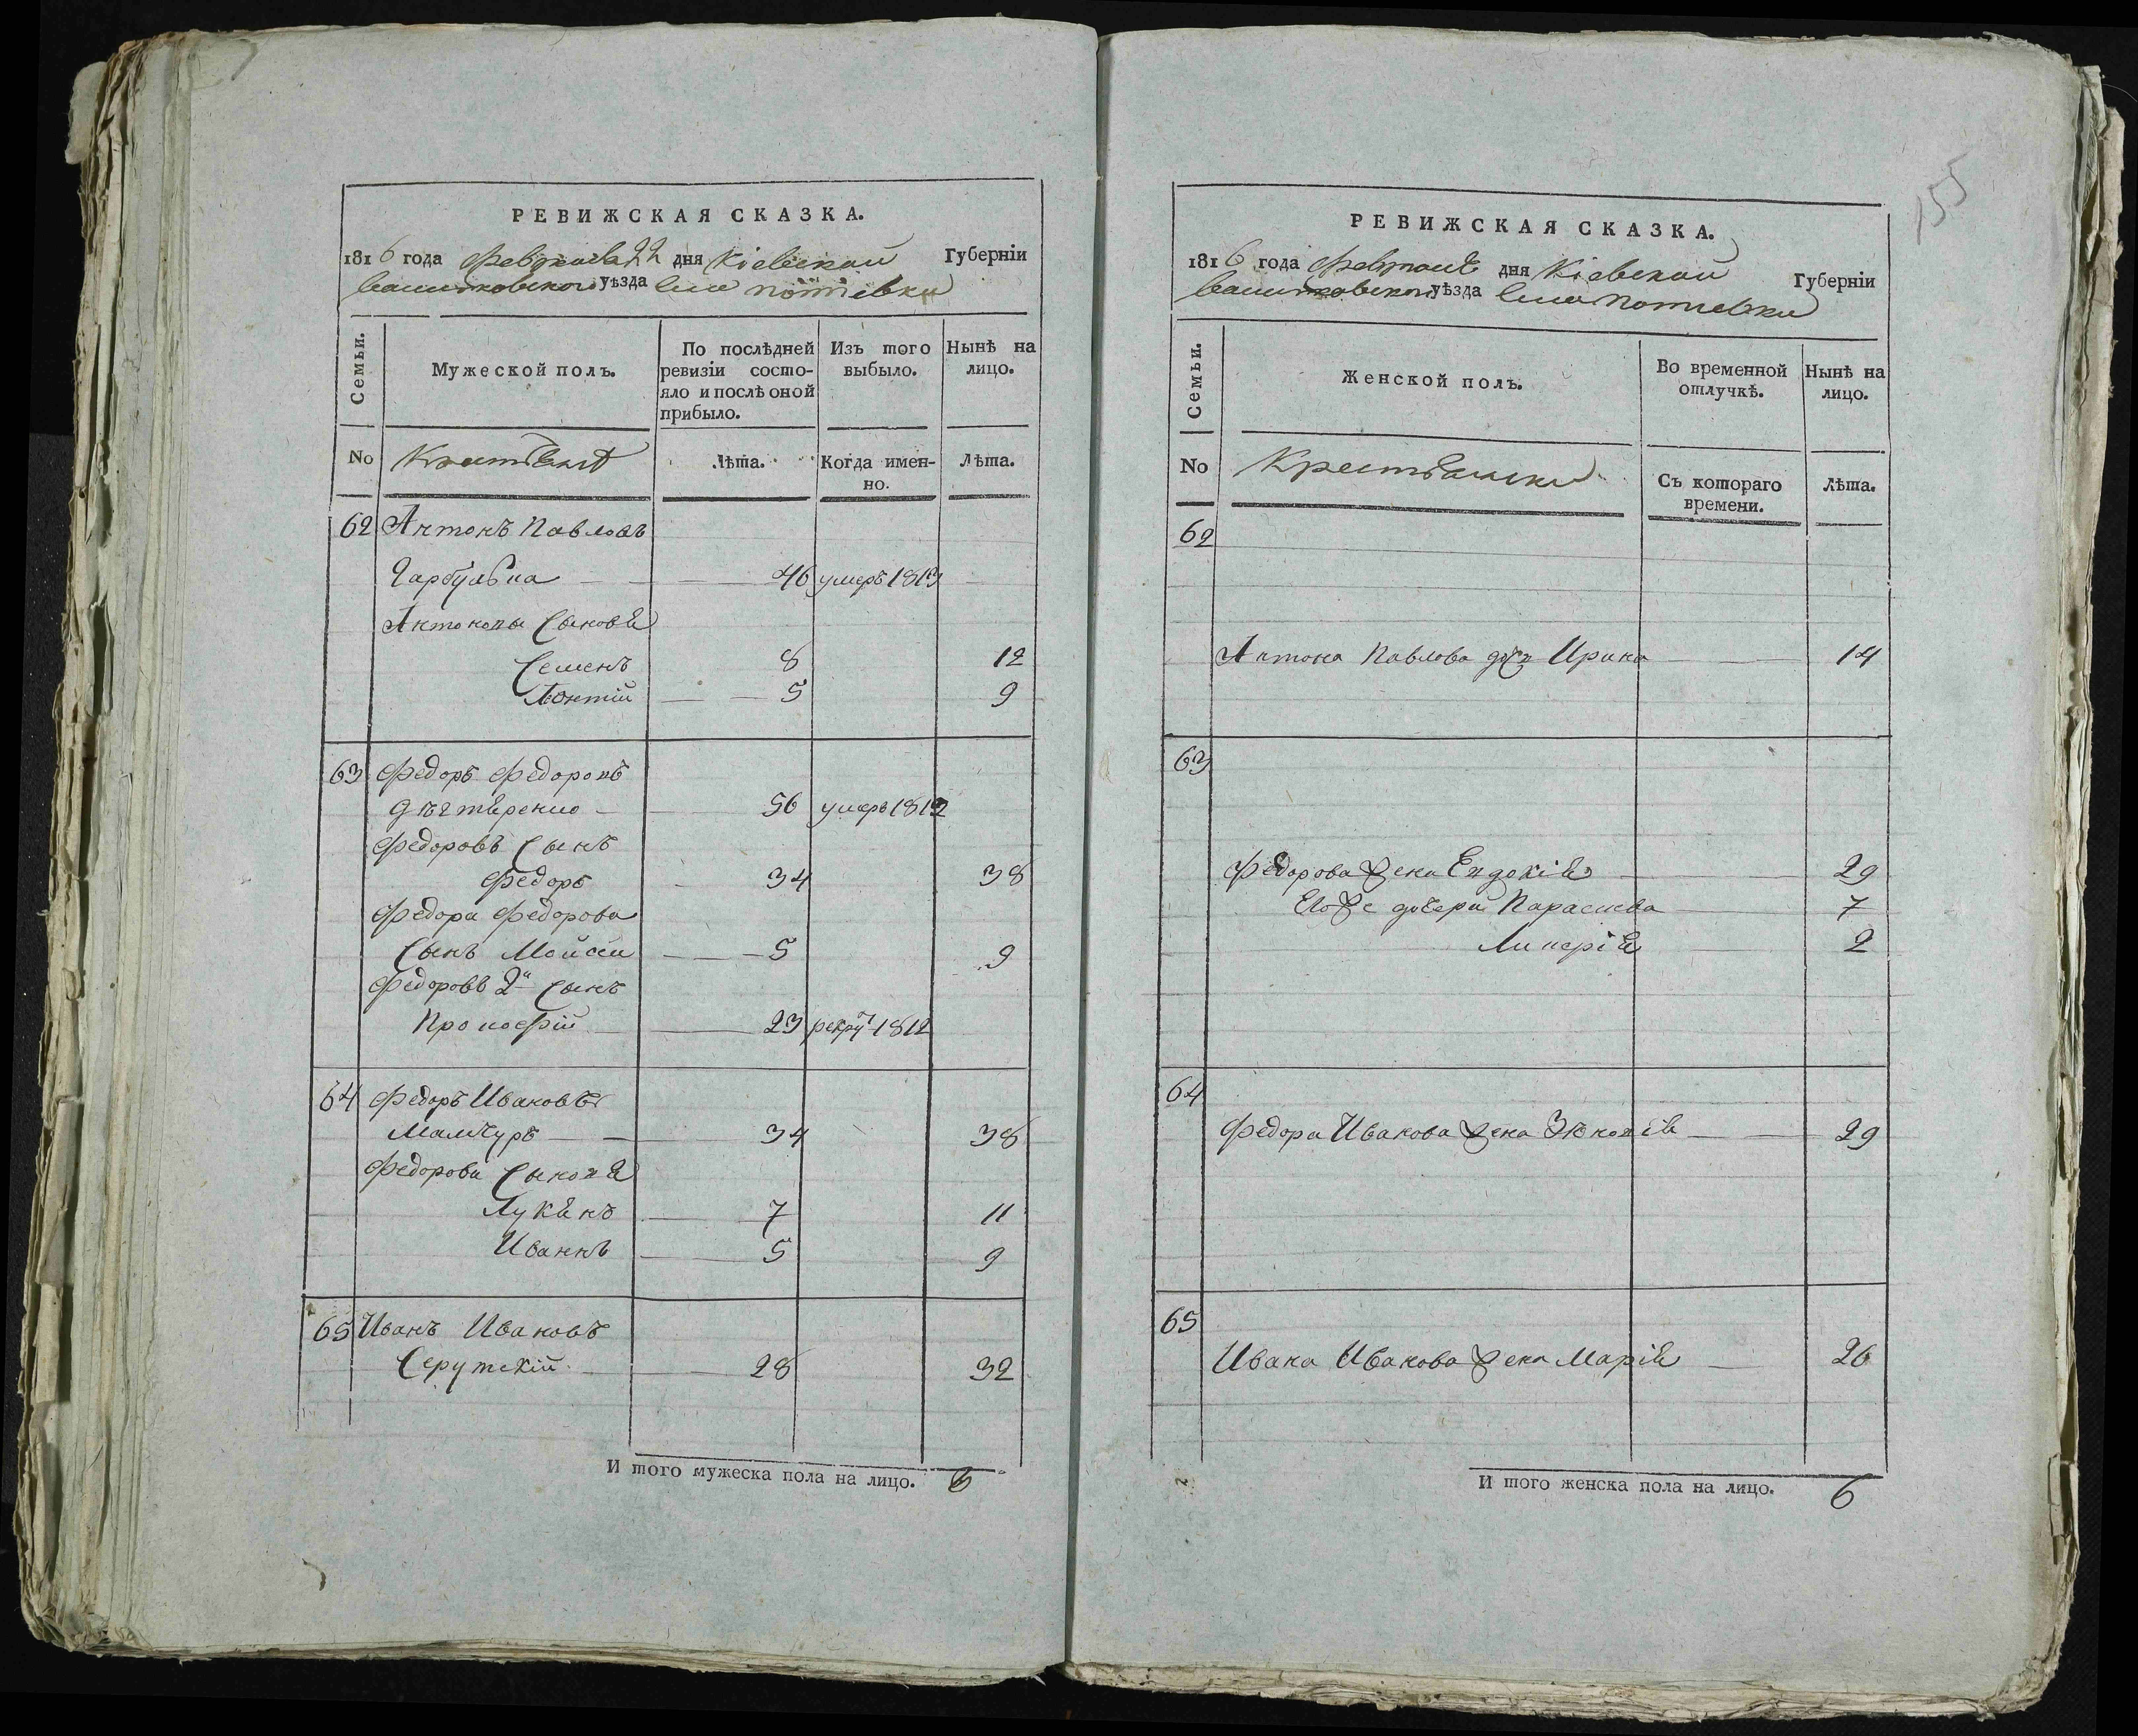 РЕВИЖСКАЯ СКАЗКА.
1816 года февраля 22 дня Кіевской Губерніи
Васильковского уѣзда села Потіевки
Семьи.
Мужеской полъ.
По послѣдней ревизіи состояло и послѣ оной прибыло.
Изъ того выбыло.
Нынѣ на лицо.
No
Крестьяне
Лѣта.
Когда именно.
Лѣта.
62 Антонъ Павловъ
46 умеръ 1813
Антоновы Сыновья
Семенъ 8 12
Леонтій 5 9
63 Федоръ Федоровъ
56 умеръ 1812
Федоровъ Сынъ
Федоръ 34 38
Федора Федорова
Сынъ Мойсей 5 9
Федоровъ 2й Сынъ
Прокофій 23 рекрут 1812
64 Федоръ Ивановъ
Мамчуръ 34 38
Федорова Сыновья
Лукьянъ 7 11
Иванъ 5 9
65 Иванъ Ивановъ
Серутскій 28 32
И того мужеска пола на лицо. 8
РЕВИЖСКАЯ СКАЗКА.
1816 года февраля дня Кіевской Губерніи
Васильковского уѣзда села Потіевки
Семьи.
Женской полъ.
Во временной отлучкѣ.
Нынѣ на лицо.
No
Крестьянки
Съ котораго времени.
Лѣта.
62
Антона Павлова дочь Ирина 14
63
Федорова жена Евдокія 29
Его же дочери Параскева 7
Ликерія 2
64
Федора Иванова жена 29
65
Ивана Иванова жена Марія 26
И того женска пола на лицо. 6
155